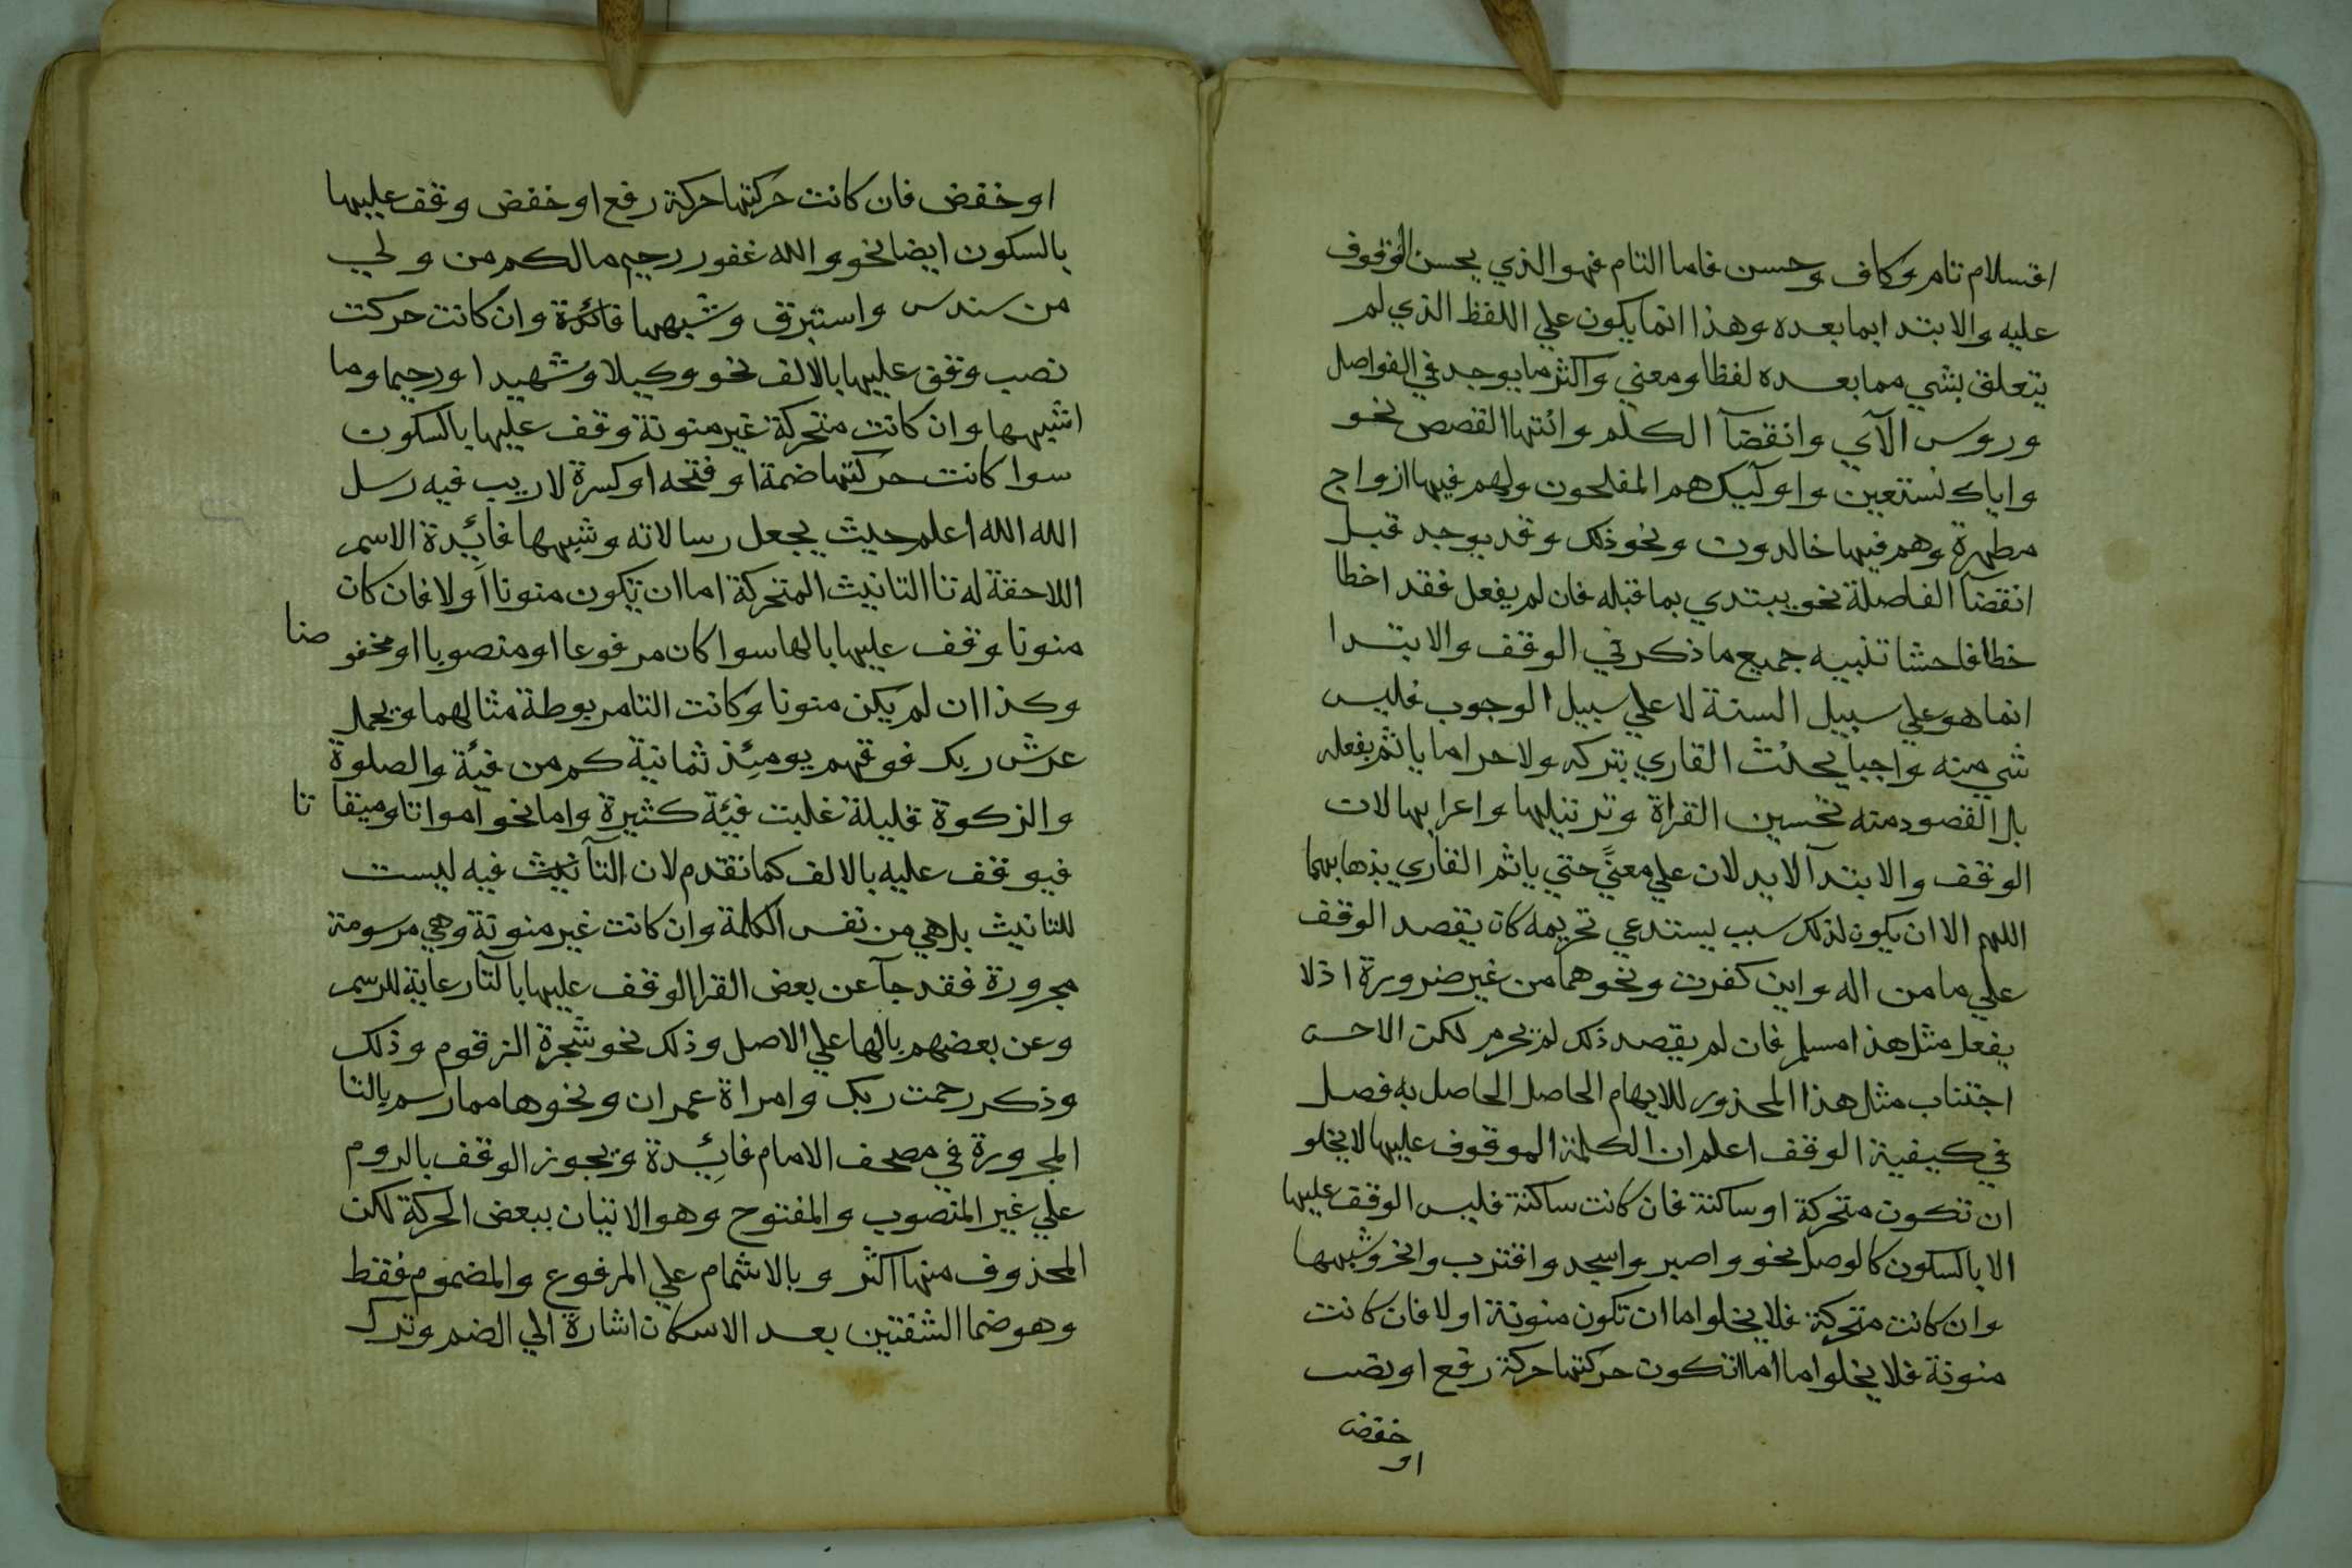 اقسلام تام وكاف وحسن فاما التام فهو الذي يحسن الوقوف
عليه والابتدا بما بعده وهذا انما يكون علي اللفظ الذي لم
يتعلق بشي مما بعده لفظا ومعني واكثر ما يوجد في الفواصل
وروس الآي وانقضآ الكلم وانتها القصص نحو
واياك نستعين واوليك هم المفلحون ولهم فيها ازواج
مطهرة وهم فيها خالدون ونحو ذلك وقد يوجد قبل
انقضآ الفاصلة نحو يبتدي بما قبله فان لم يفعل فقد اخطا
خطا فاحشا تنبيه جميع ما ذكر في الوقف والابتدا
انما هو علي سبيل السنة لا علي سبيل الوجوب فليس
شي منه واجبا يحنث القاري بتركه ولا حراما ياثم بفعله
بل القصود منه تحسين القراة وترتيلها واعرابها لان
الوقف والابتدآ لا يدلان علي معنيً حتي ياثم القاري بذهابهما
اللهم الا ان يكون لذلك سبب يستدعي تحريمه كان يقصد الوقف
علي ما من اله واني كفرت ونحوهما من غير ضرورة اذ لا
يفعل مثل هذا مسلم فان لم يقصد ذلك لم يحرم لكن الاحسن
اجتناب مثل هذا المحذور للايهام الحاصل الحاصل به فصل
في كيفية الوقف اعلم ان الكلمة الموقوف عليها لا يخلو
ان تكون متحركة او ساكنة فان كانت ساكنة فليس الوقف عليها
الا بالسكون كالوصل نحو واصبر واسجد واقترب وانحر وشبهها
وان كانت متحركة فلا يخلوا اما ان تكون منونة اولا فان كانت
منونة فلا يخلوا ما اما انتكون حركتها حركة رفع او نصب
او خفض
او خفض فان كانت حركتها حركة رفع او خفض وقف عليها
بالسكون ايضا نحو والله غفور رحيم ما لكم من ولي
من سندس واستبرق وشبهها فائدة وان كانت حركت
نصب وقف عليها بالالف نحو وكيلا وشهيدا ورحيما وما
اشبهها وان كانت متحركة غير منونة وقف عليها بالسكون
سوا كانت حركتها ضمة او فتحه او كسرة لا ريب فيه رسل
الله الله اعلم حيث يجعل رسالاته وشبهها فائدة الاسم
اللاحقة له تا التانيث المتحركة اما ان يكون منونا اولا فان كان
منونا وقف عليها بالها سوا كان مرفوعا او منصوبا او مخفو ضا
وكذا ان لم يكن منونا وكانت التا مربوطة مثالهما ويحمل
عرش ربك فوقهم يومئذ ثمانية كم من فئة والصلوة
والزكوة قليلة غلبت فئة كثيرة واما نحو امواتا وميقا تا
فيوقف عليه بالالف كما تقدم لان التآ نيث فيه ليست
للتانيث بل هي من نفس الكلمة وان كانت غير منونة وهي مرسومة
مجرورة فقد جآ عن بعض القرا الوقف عليها بالتآ رعاية للرسم
وعن بعضهم بالها علي الاصل وذلك نحو شجرة الزقوم وذلك
وذكر رحمت ربك وامراة عمران ونحوها مما رسم بالتا
المجرورة في مصحف الامام فائدة ويجوز الوقف بالروم
علي غير المنصوب والمفتوح وهو الاتيان ببعض الحركة لكن
المحذوف منها اكثر وبالاشمام علي المرفوع والمضموم فقط
وهو ضما الشفتين بعد الاسكان اشارة الي الضم وترك